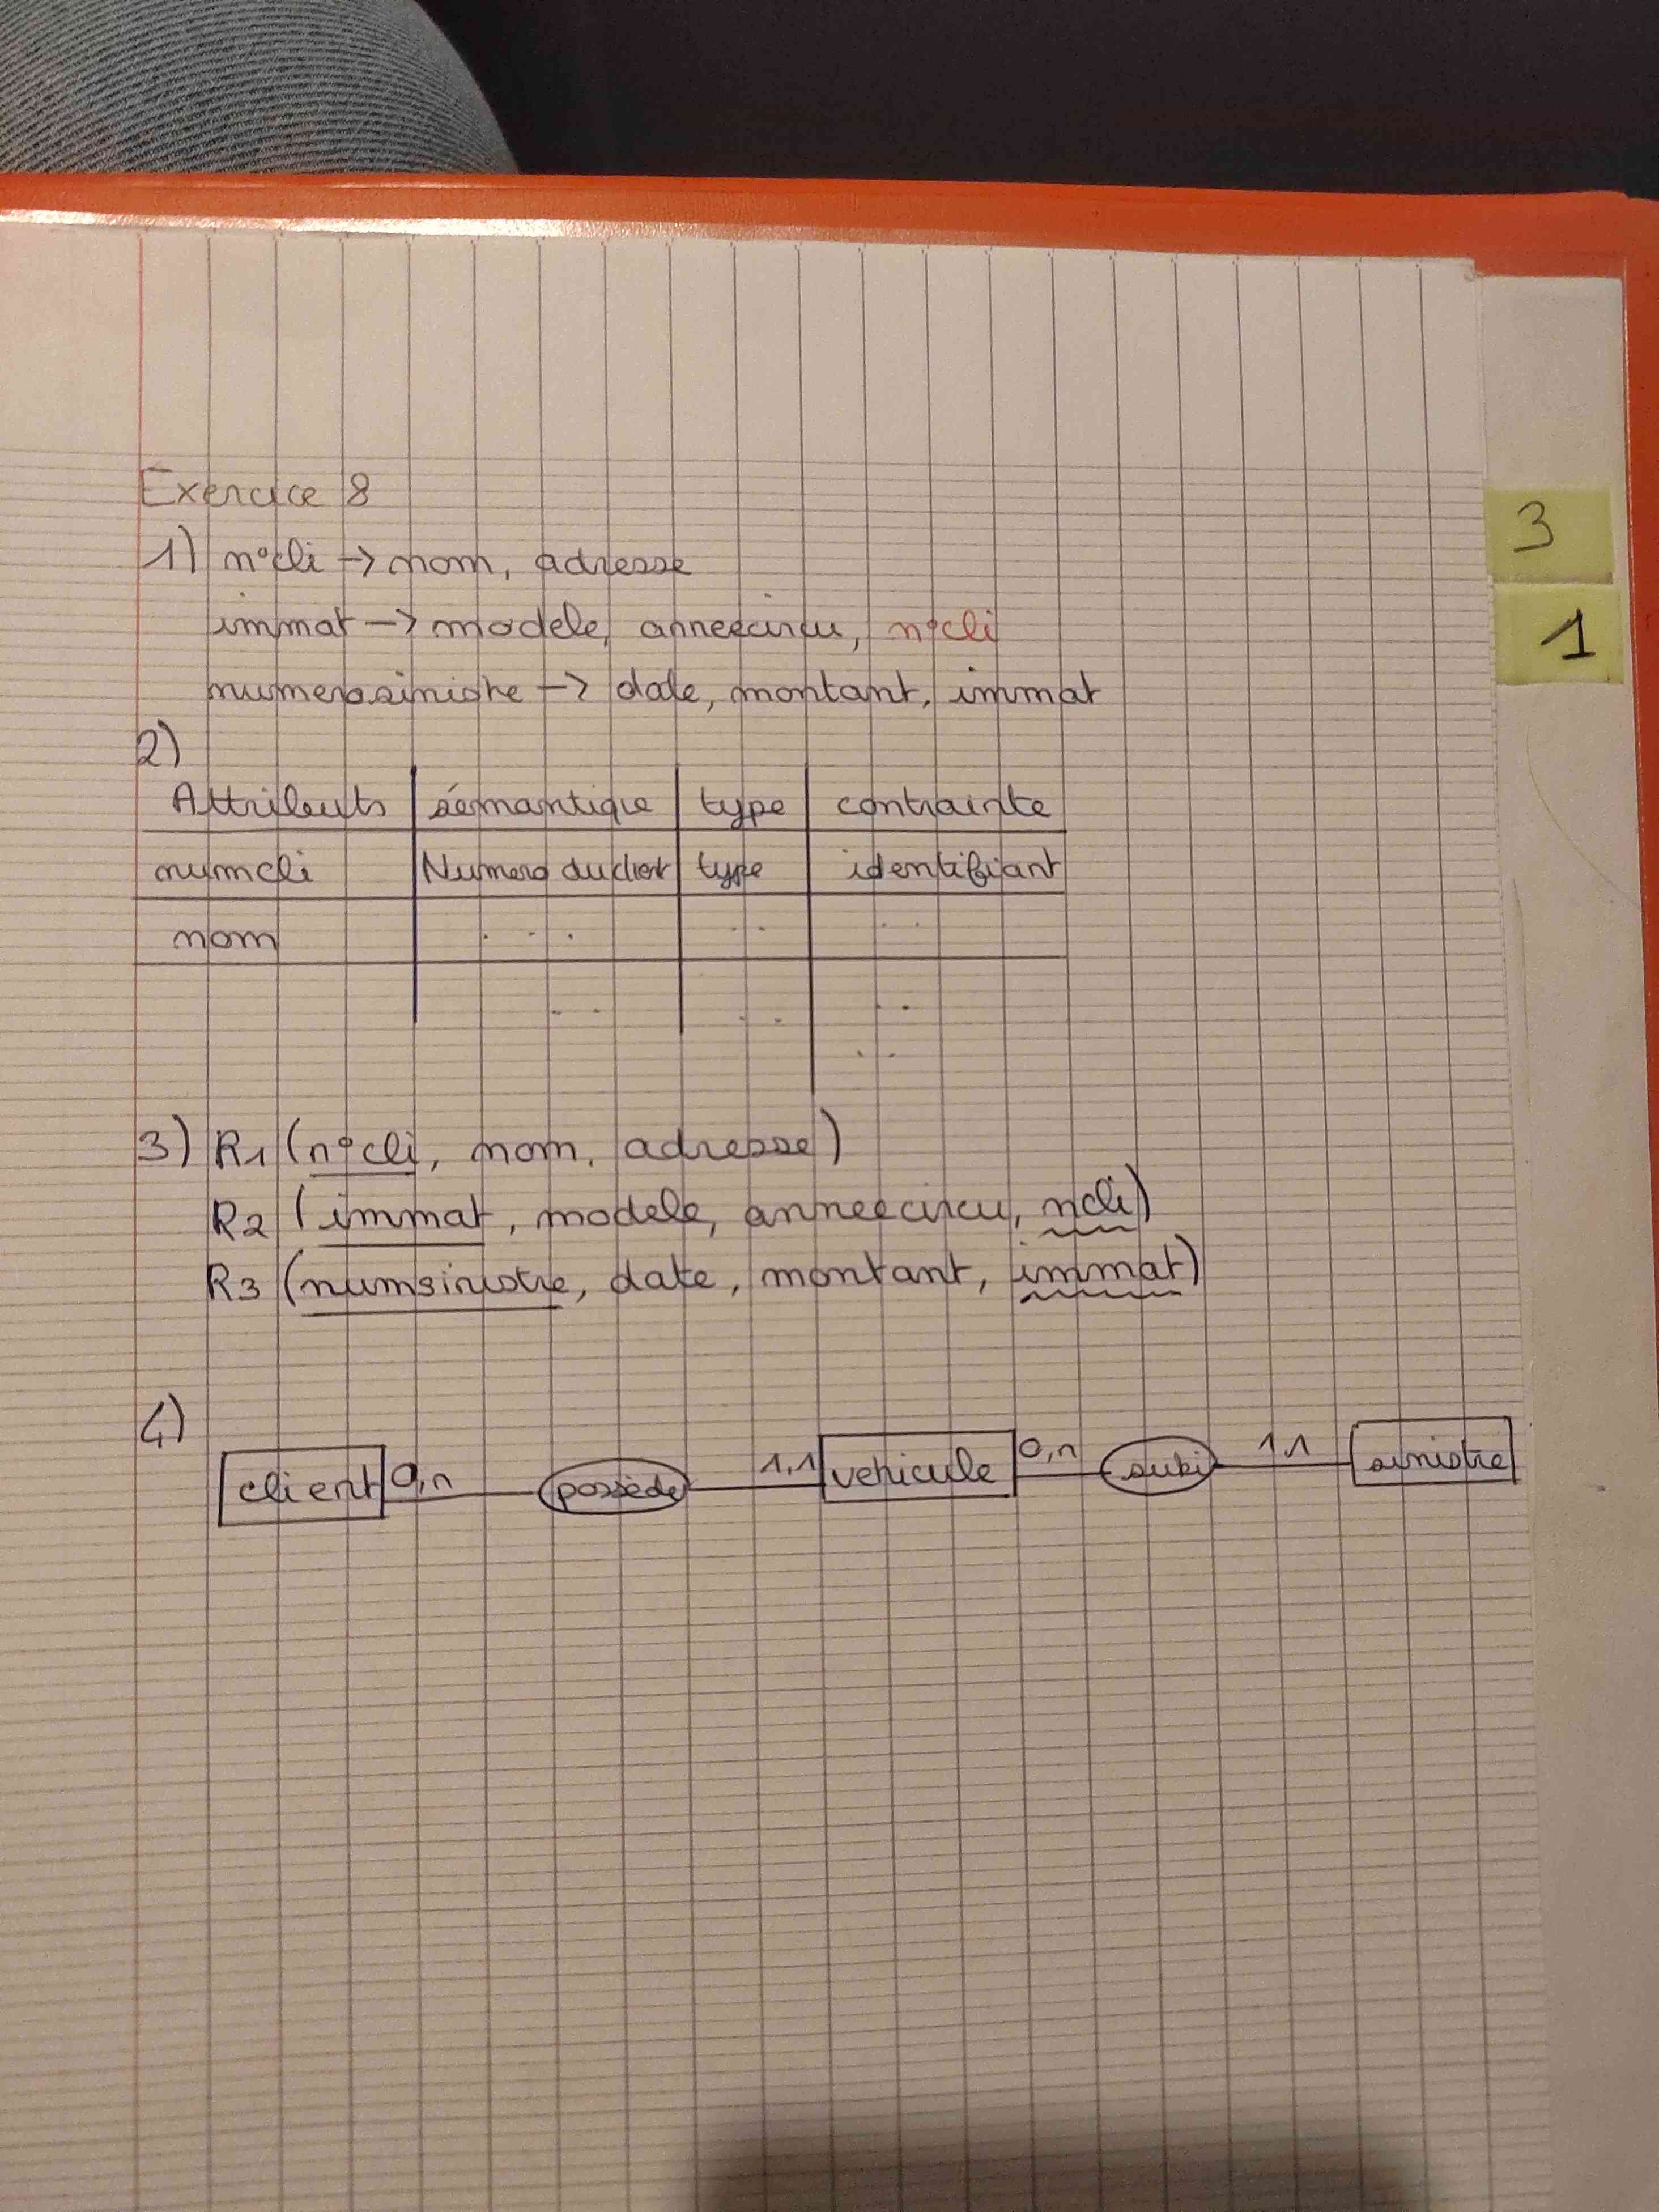 Exercice 8
1) n°cli → nom, adresse
immat → modele, anneecircu, n°cli
numerosinistre → date, montant, immat
2)
Attributs sémantique type contrainte
numcli Numero du client type identifiant
nom ... .. ..
.. .. ..
..
3) R1 (n°cli, nom, adresse)
R2 (immat, modele, anneecircu, ncli)
R3 (numsinistre, date, montant, immat)
4)
client 0,n possède 1,1 vehicule 0,n subi 1,1 sinistre
3
1